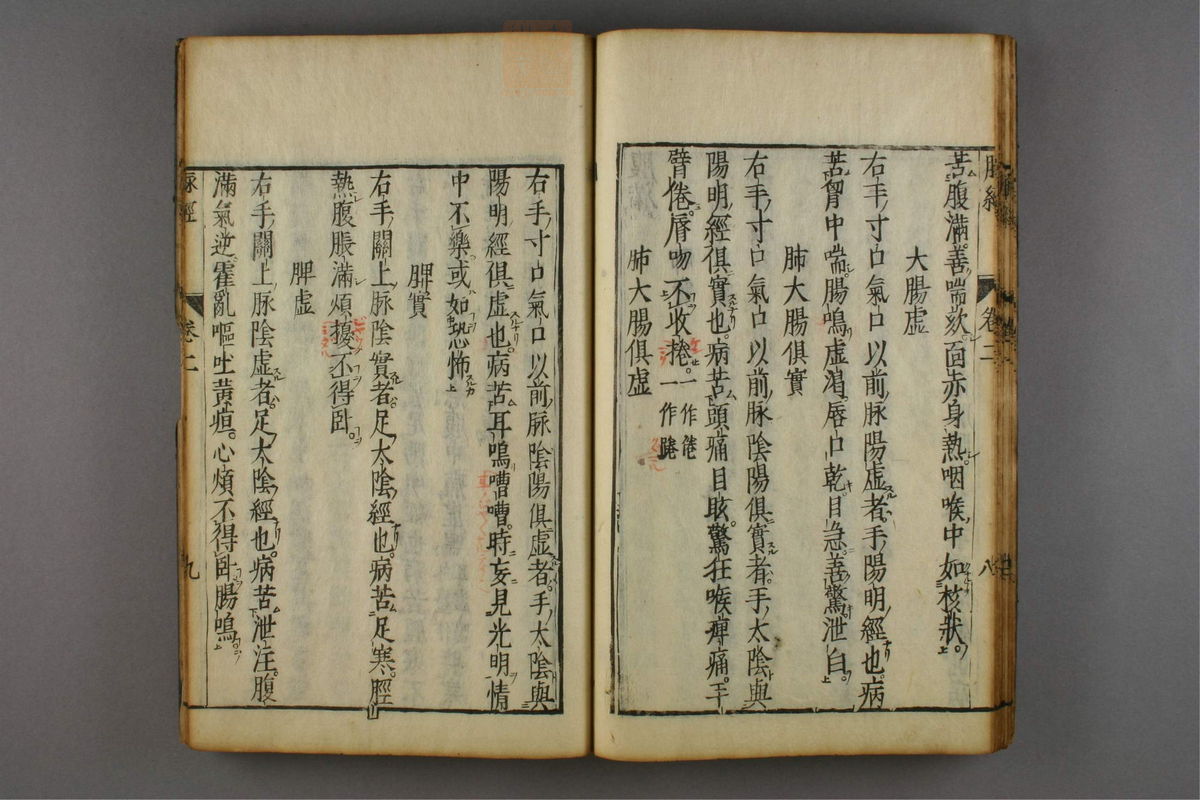 脉經 卷二 八
苦腹滿善喘欬面赤身熱咽喉中如核狀
大腸虛
右手寸口氣口以前脉陽虛者手陽明經也病
苦胷中喘腸鳴虛渴唇口乾目急善驚泄白
肺大腸俱實
右手寸口氣口以前脉陰陽俱實者手太陰與
陽明經俱實也病苦頭痛目眩驚狂喉痺痛手
臂惓脣吻不收捲一作惓一作
肺大腸俱虛
右手寸口氣口以前脉陰陽俱虛者手太陰與
陽明經俱虛也病苦耳鳴嘈嘈時妄見光明情
中不樂或如恐怖
脾實
右手關上脉陰實者足太陰經也病苦足寒脛
熱腹脹滿煩擾不得卧
脾虛
右手關上脉陰虛者足太陰經也病苦泄注腹
滿氣逆霍亂嘔吐黃疸心煩不得卧腸鳴
脉經 卷二 九